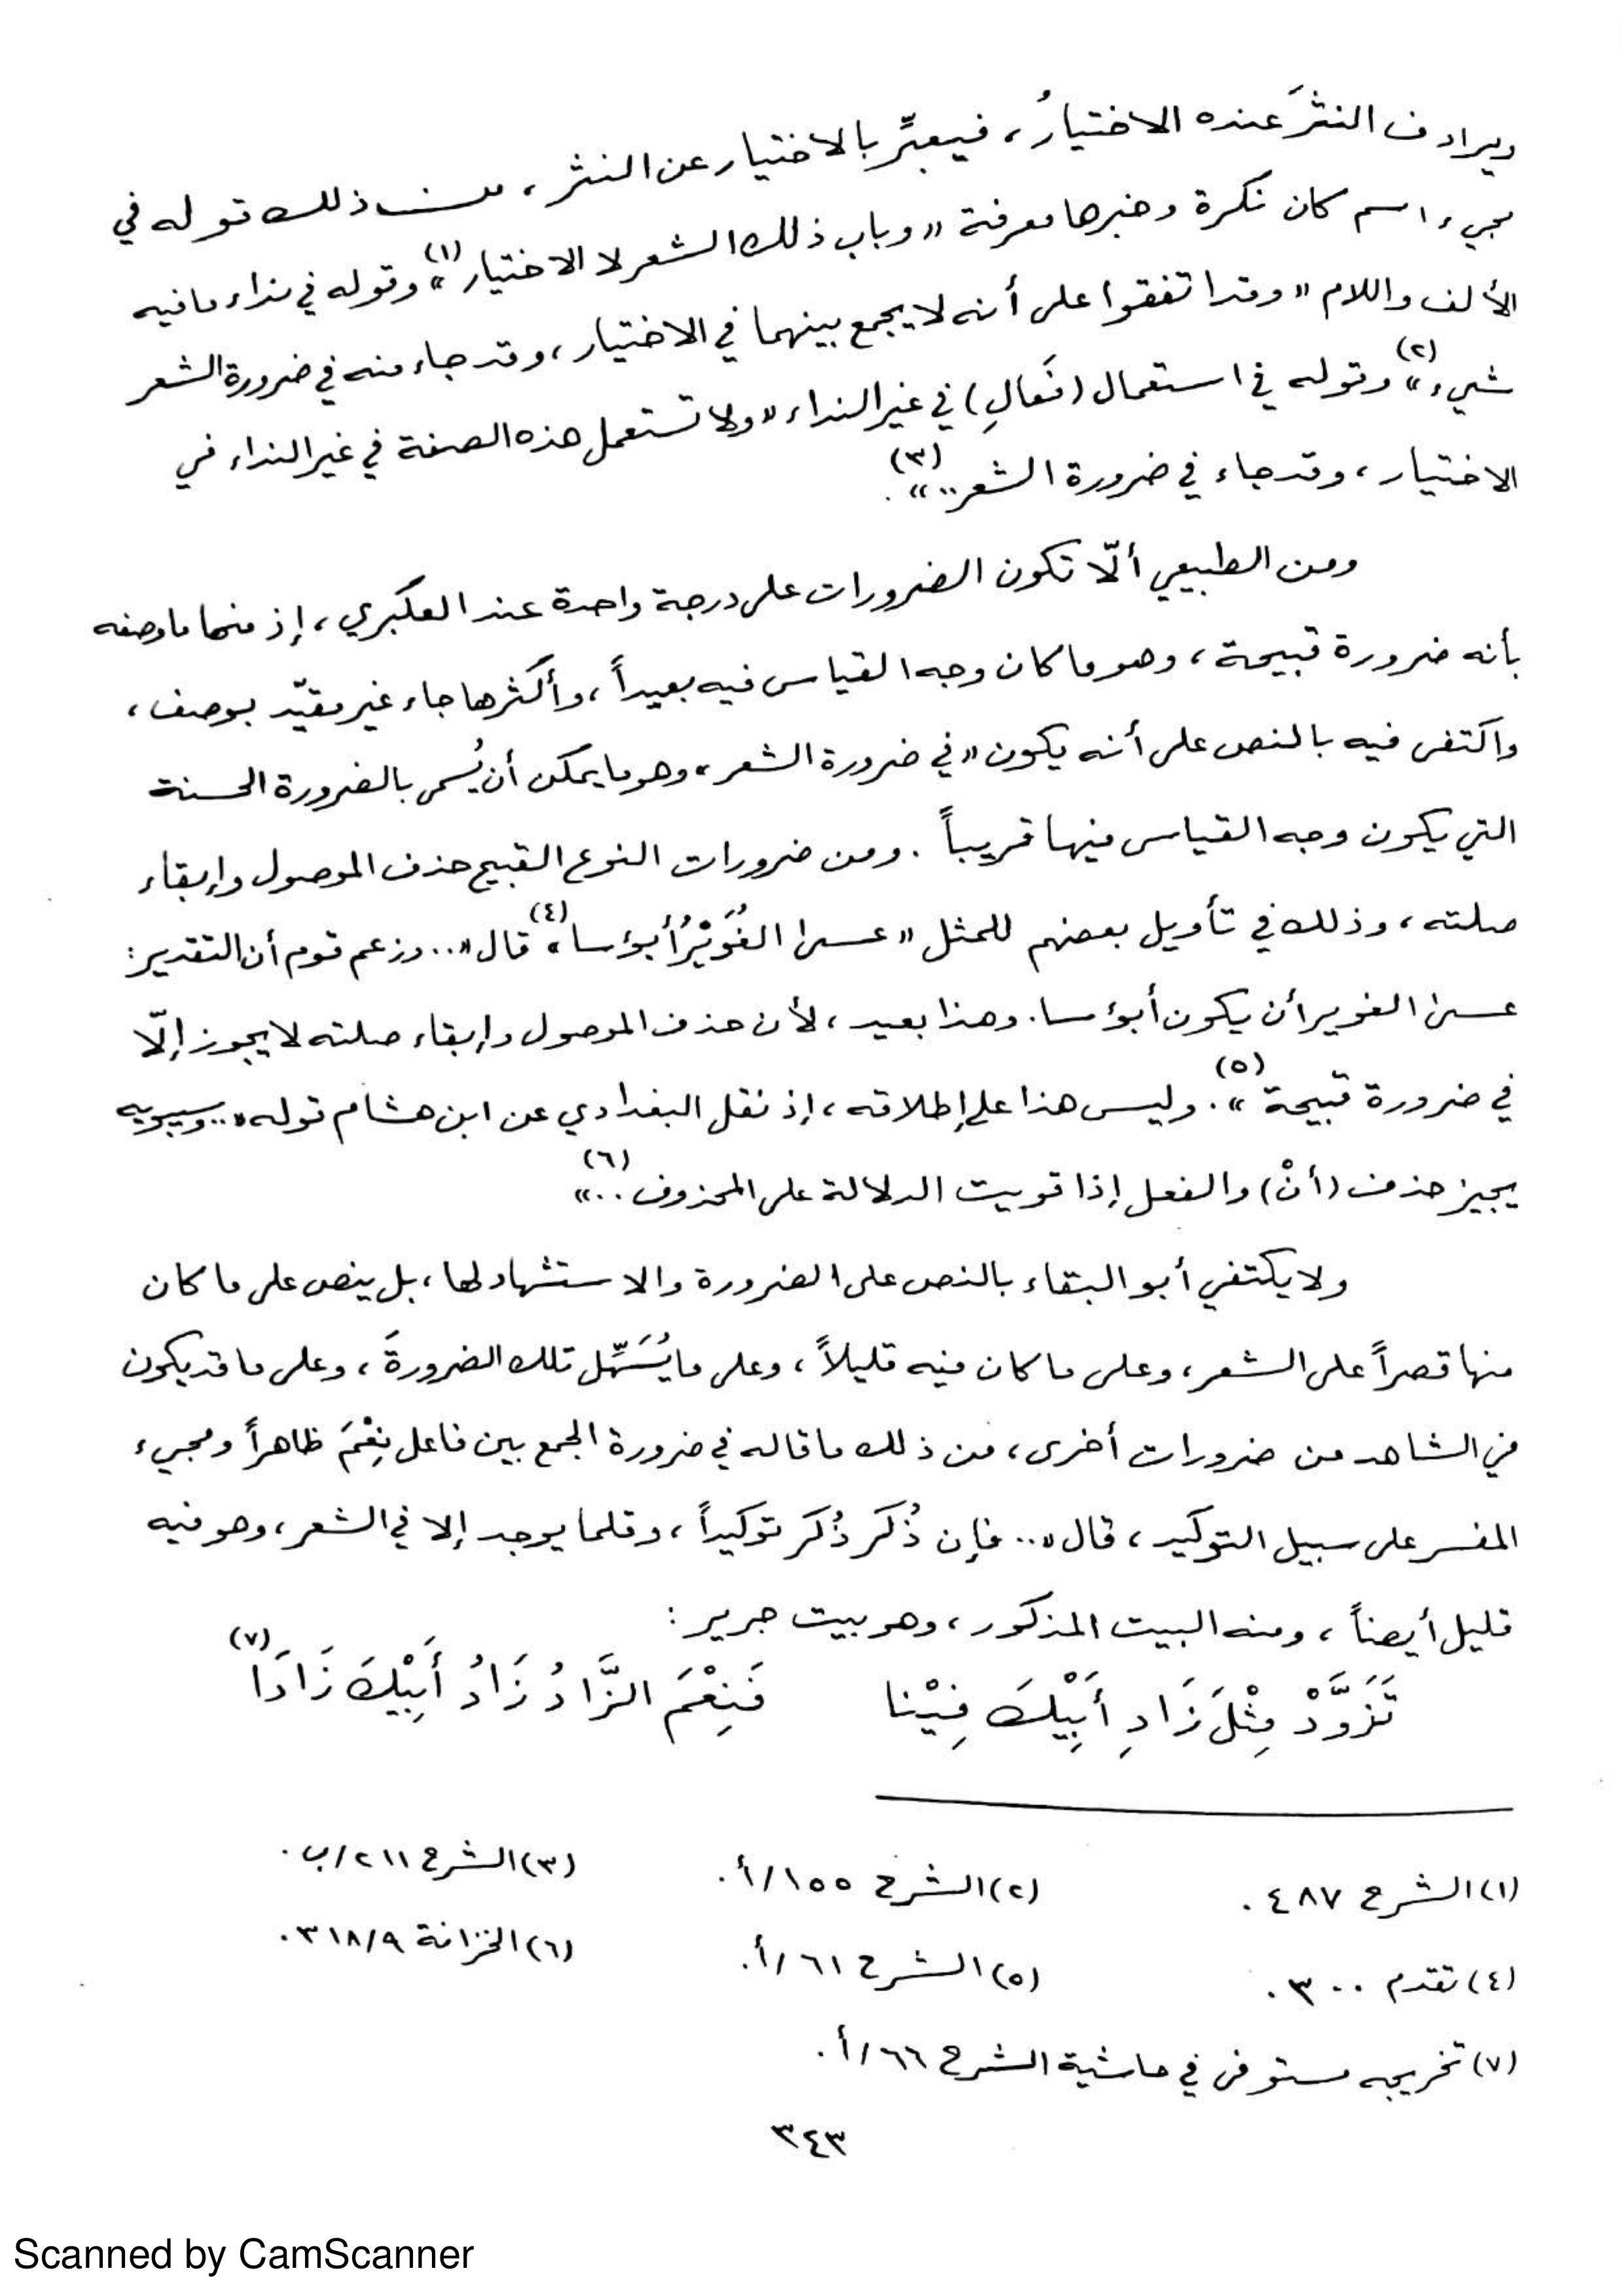 ويرادف النثرَ عنده الاختيارُ، فيعبِّر بالاختيار عن النثر، من ذلك قوله في
مجيء اسم كان نكرة وخبرها معرفة «وباب ذلك الشعر لا الاختيار»(١) وقوله في نداء ما فيه
الألف واللام «وقد اتفقوا على أنه لا يجمع بينهما في الاختيار، وقد جاء منه في ضرورة الشعر
شيء»(٢) وقوله في استعمال (فَعالِ) في غير النداء «ولا تستعمل هذه الصفة في غير النداء في
الاختيار، وقد جاء في ضرورة الشعر..»(٣).
ومن الطبيعي ألّا تكون الضرورات على درجة واحدة عند العكبري، إذ منها ما وصفه
بأنه ضرورة قبيحة، وهو ما كان وجه القياس فيه بعيداً، وأكثرها جاء غير مقيّد بوصف،
واكتفى فيه بالنص على أنه يكون «في ضرورة الشعر» وهو ما يمكن أن يُسمى بالضرورة الحسنة
التي يكون وجه القياس فيها قريباً. ومن ضرورات النوع القبيح حذف الموصول وإبقاء
صلته، وذلك في تأويل بعضهم للمثل «عسى الغُوَيْرُ أبؤسا»(٤) قال «.. وزعم قوم أن التقدير:
عسى الغوير أن يكون أبؤسا. وهذا بعيد، لأن حذف الموصول وإبقاء صلته لا يجوز إلّا
في ضرورة قبيحة»(٥). وليس هذا على إطلاقه، إذ نقل البغدادي عن ابن هشام قوله «.. وسيبويه
يجيز حذف (أنْ) والفعل إذا قويت الدلالة على المحذوف..»(٦)
ولا يكتفي أبو البقاء بالنص على الضرورة والاستشهاد لها، بل ينص على ما كان
منها قصراً على الشعر، وعلى ما كان فيه قليلاً، وعلى ما يُسَهِّل تلك الضرورةَ، وعلى ما قد يكون
في الشاهد من ضرورات أخرى، من ذلك ما قاله في ضرورة الجمع بين فاعل نِعْمَ ظاهراً ومجيء
المفسر على سبيل التوكيد، قال «.. فإن ذُكَر ذُكَر توكيداً، وقلما يوجد إلا في الشعر، وهو فيه
قليل أيضاً، ومنه البيت المذكور، وهو بيت جرير:
تَزَوَّدْ مِثْلَ زَادِ أَبِيْكَ فِيْنا فَنِعْمَ الزَّادُ زَادُ أَبِيْكَ زَادَا(٧)
(١) الشرح ٤٨٧. (٢) الشرح ١٥٥/أ. (٣) الشرح ٢١١/ب.
(٤) تقدم ٣٠٠. (٥) الشرح ٦١/أ. (٦) الخزانة ٣١٨/٩.
(٧) تخريجه مستوفى في حاشية الشرح ٦٦/أ.
٣٤٣
Scanned by CamScanner